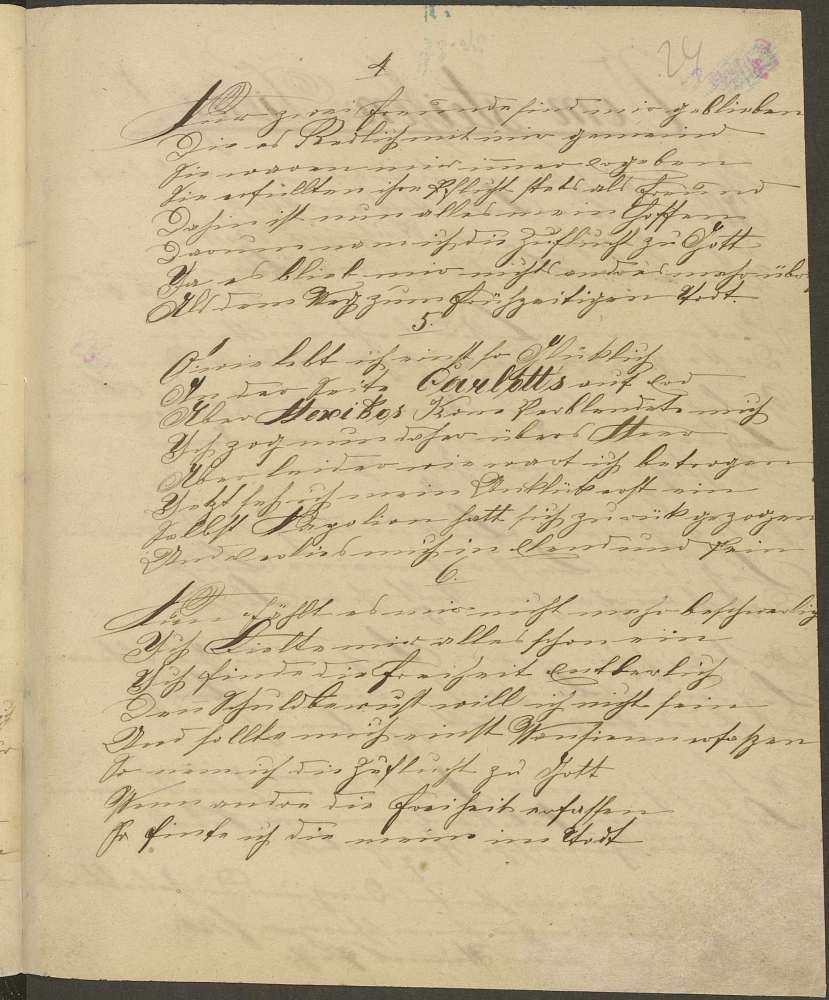 24
4.
Nur zwei Freunde sind mir geblieben
Die es Redlich mit mir gemeind
Sie waren mir immer ergeben
Sie erfüllten ihre Pflicht stets als Freund
Dahin ist nun alles mein Hoffen
Darum nam ich die Zuflucht zu Gott
Ja es blieb mir nichts andres mehr übrig
Als dem Weg zum frühzeitigen Todt.
5.
O wie lebt ich einst so Glüklich
In der Seite Carlotta's auf
Aber Mexikos Krone Verblendete mich
Ich zog nun daher übers Meer
Aber leider wie wart ich betrogen
Jetzt seh ich mein Unklük erst ein
Selbst Napolion hatt sich zurük gezogen
Und verlies mich in Elend und Pein
6.
Nun fählt es mir nicht mehr beschwerlich
Ich bielte mir alles schon ein
Ich finde die Freiheit entberlich
Den Schuldbewust will ich nicht sein
Und sollte mich einst erfassen
So nem ich die Zuflucht zu Gott
Wenn andre die Freiheit erfassen
So finde ich die meine im Todt